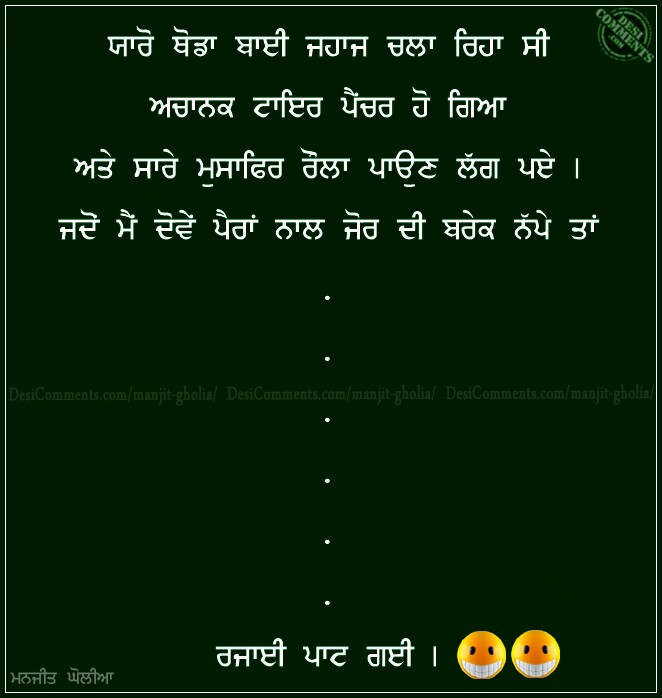 DESI
COMMENTS
.com
ਯਾਰੋ ਥੋਡਾ ਬਾਈ ਜਹਾਜ ਚਲਾ ਰਿਹਾ ਸੀ
ਅਚਾਨਕ ਟਾਇਰ ਪੈਂਚਰ ਹੋ ਗਿਆ
ਅਤੇ ਸਾਰੇ ਮੁਸਾਫਿਰ ਰੌਲਾ ਪਾਉਣ ਲੱਗ ਪਏ ।
ਜਦੋਂ ਮੈਂ ਦੋਵੇਂ ਪੈਰਾਂ ਨਾਲ ਜੋਰ ਦੀ ਬਰੇਕ ਨੱਪੇ ਤਾਂ
.
.
DesiComments.com/manjit-gholia/ DesiComments.com/manjit-gholia/ DesiComments.com/manjit-gholia/
.
.
.
.
ਰਜਾਈ ਪਾਟ ਗਈ ।
ਮਨਜੀਤ ਘੋਲੀਆ